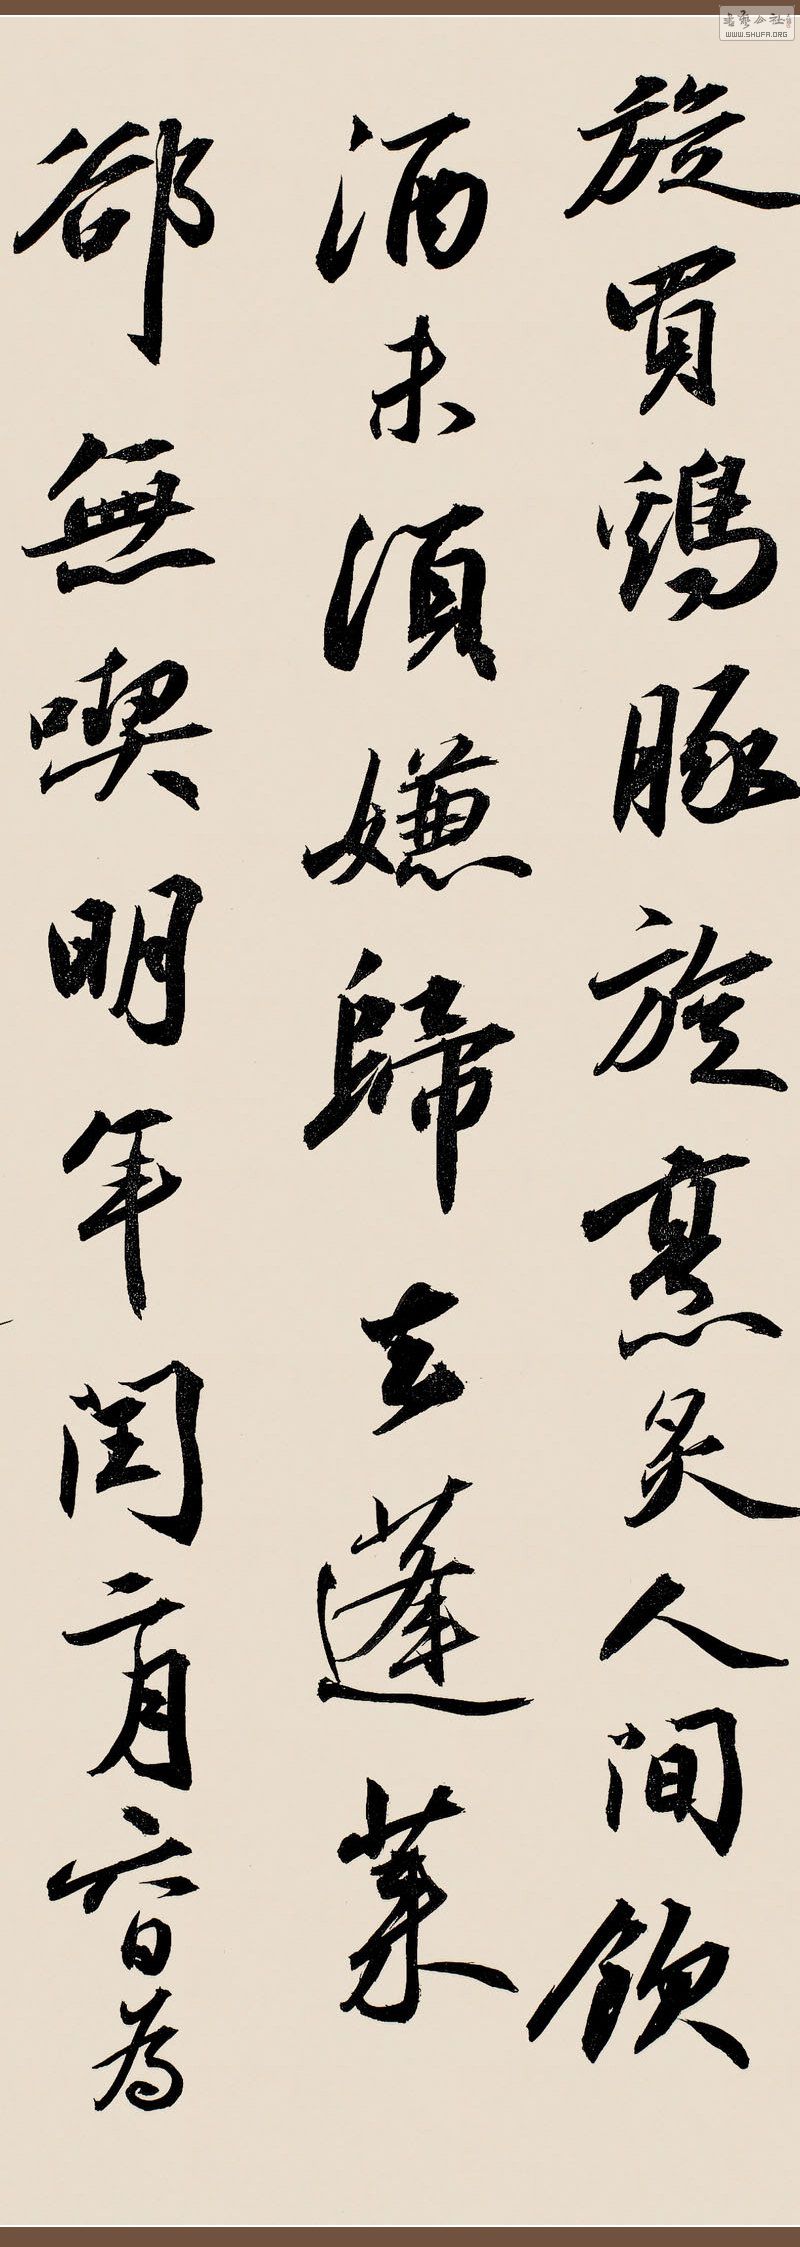 旋買鷄豚旋烹炙人間飲
酒未須嫌歸去蓬萊
卻無喫明年閏二月六日為
书艺公社
WWW.SHUFA.ORG